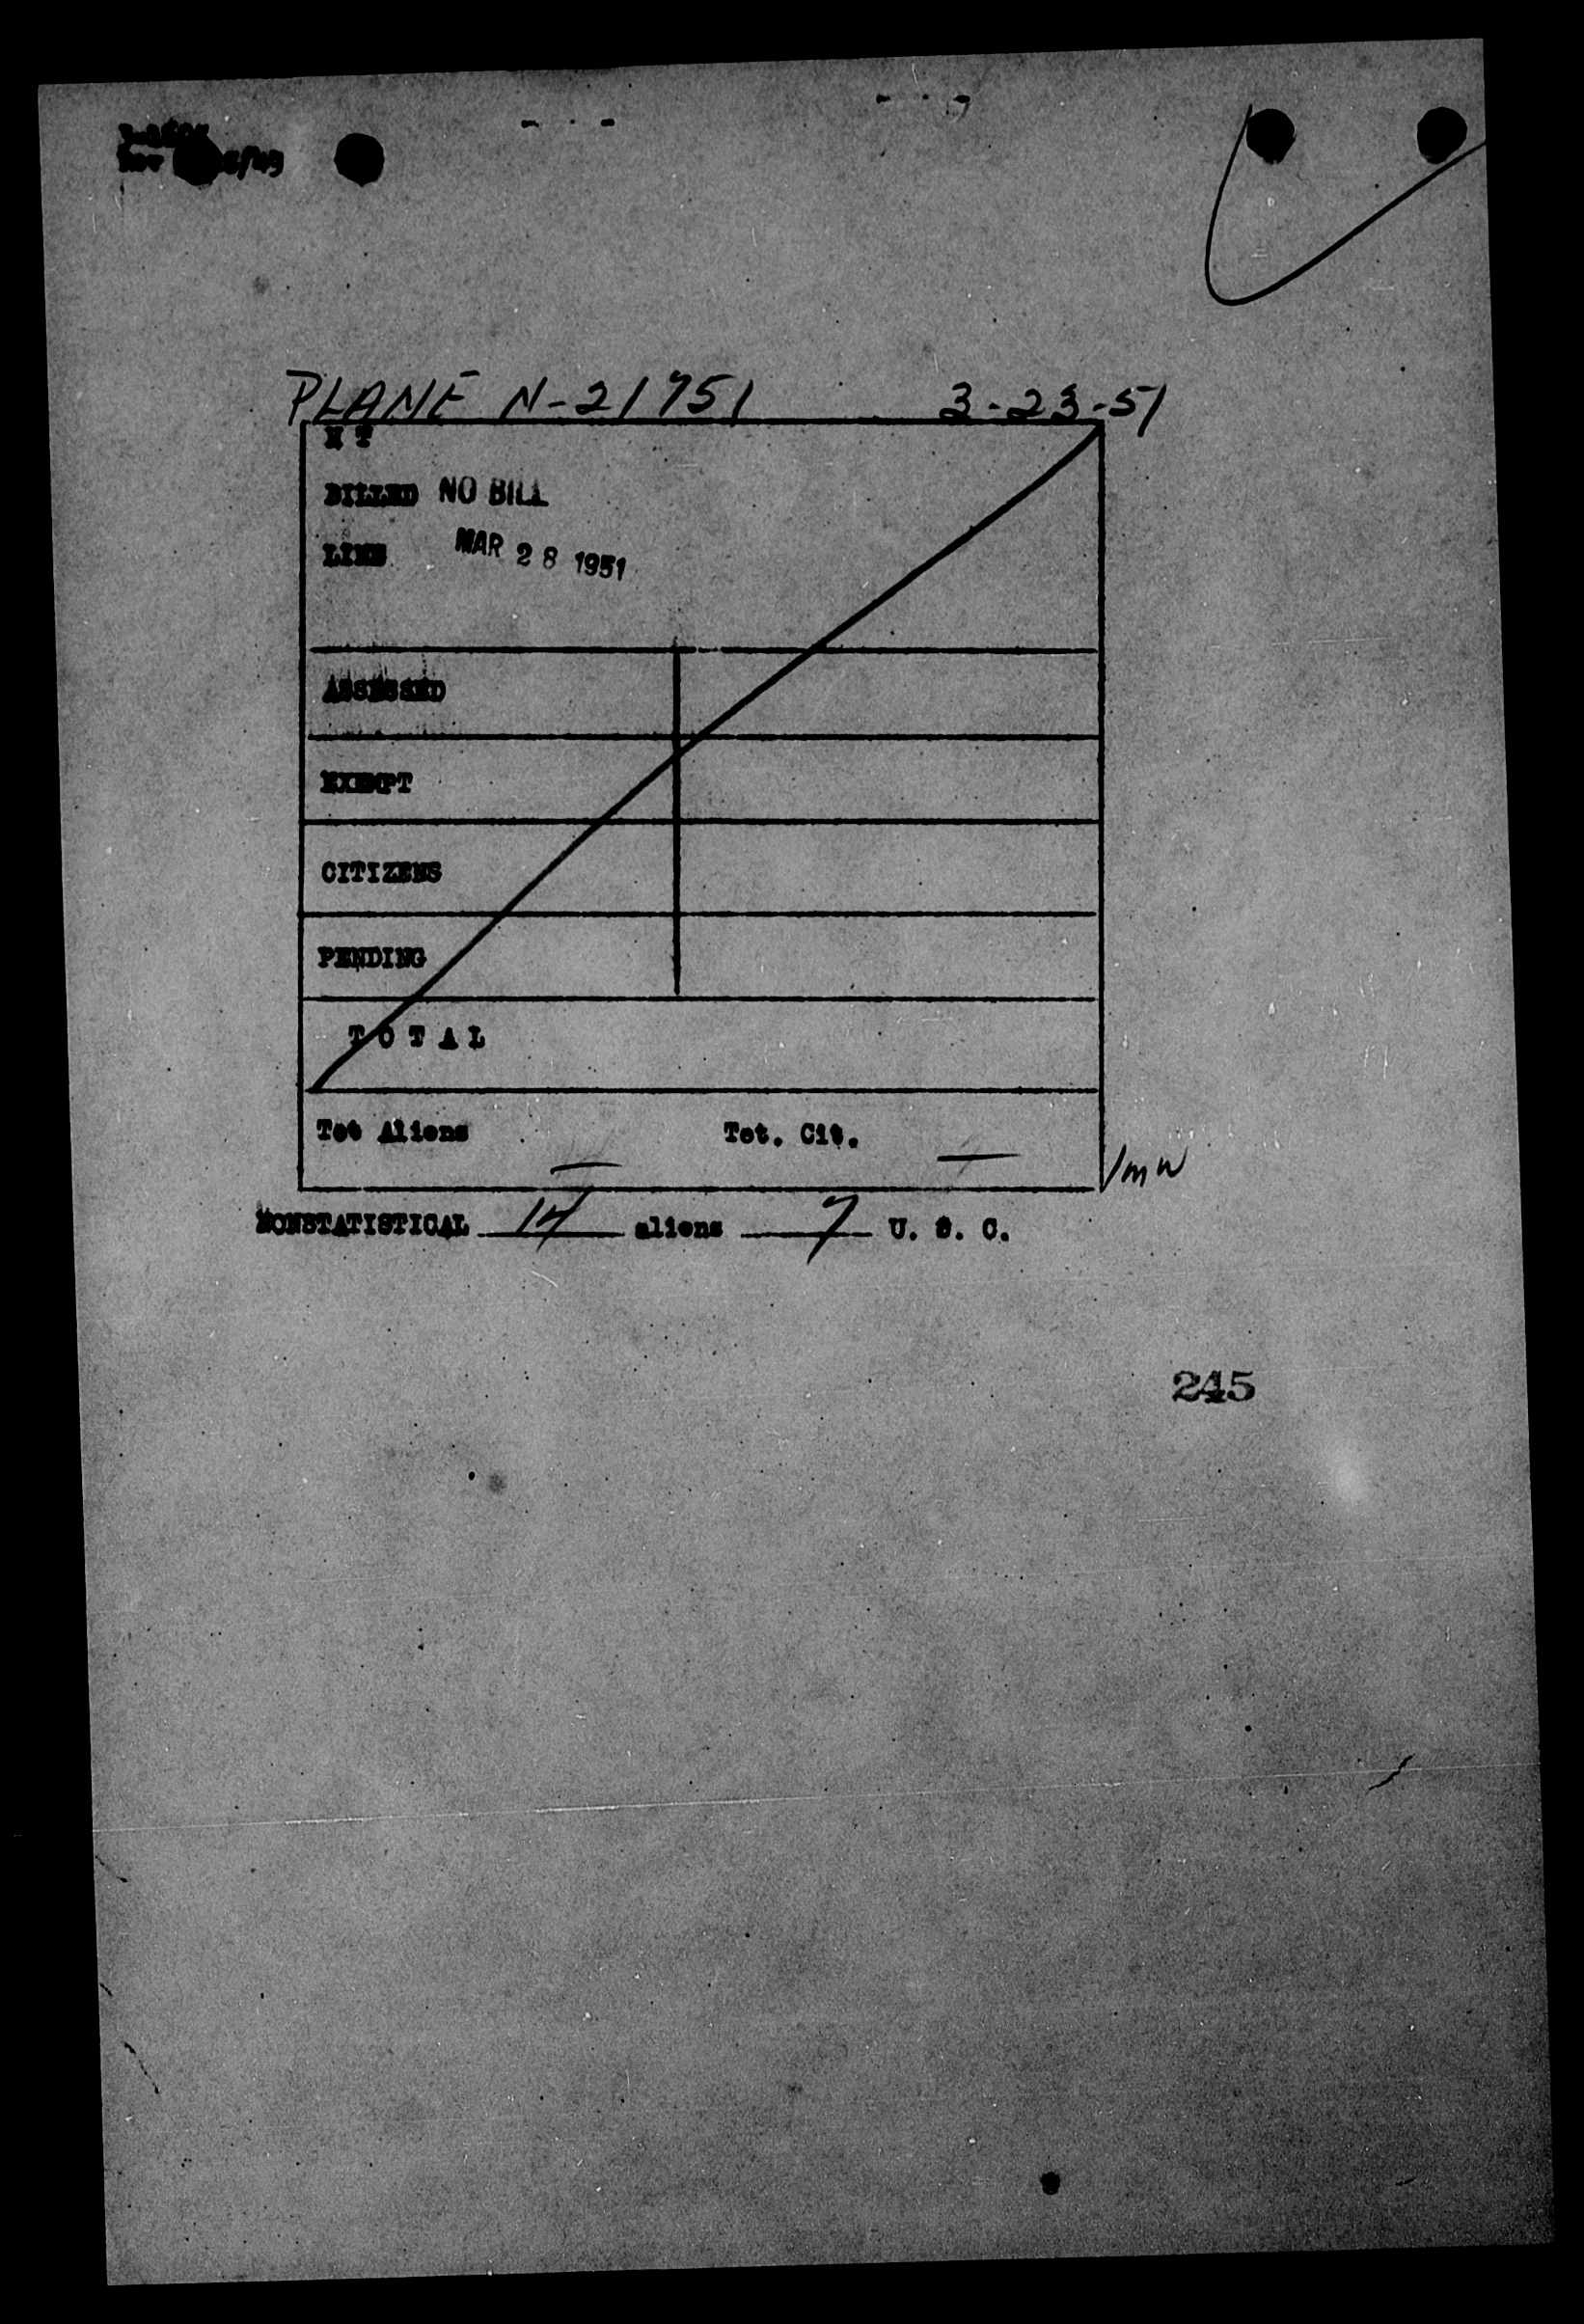 PLANE N-21751 3-23-51
BILLED NO BILL
LINE MAR 28 1951
ASSESSED
EXEMPT
CITIZENS
PENDING
TOTAL
Tot Aliens — Tot. Cit. —
/mw
NONSTATISTICAL 14 aliens 7 U. S. C.
245